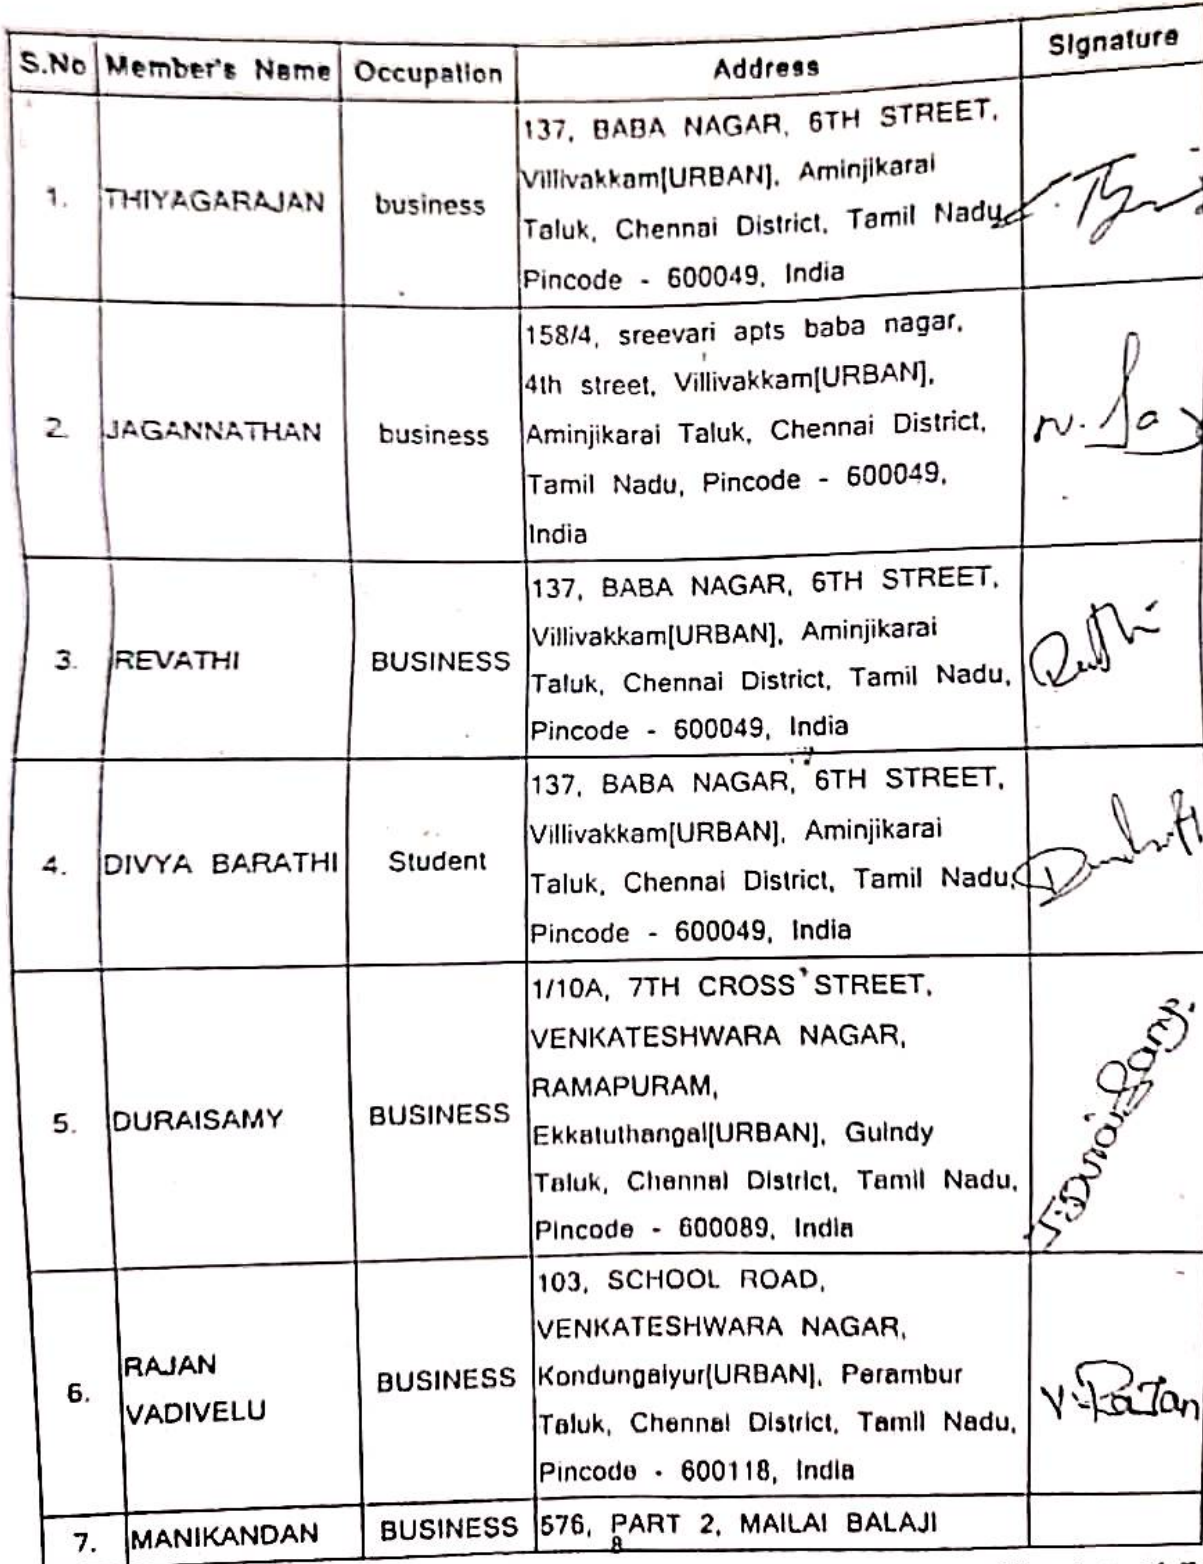 S.No Member's Name Occupation Address Signature
1. THIYAGARAJAN business
137, BABA NAGAR, 6TH STREET,
Villivakkam[URBAN], Aminjikarai
Taluk, Chennai District, Tamil Nadu,
Pincode - 600049, India
2. JAGANNATHAN business
158/4, sreevari apts baba nagar,
4th street, Villivakkam[URBAN],
Aminjikarai Taluk, Chennai District,
Tamil Nadu, Pincode - 600049,
India
3. REVATHI BUSINESS
137, BABA NAGAR, 6TH STREET,
Villivakkam[URBAN], Aminjikarai
Taluk, Chennai District, Tamil Nadu,
Pincode - 600049, India
4. DIVYA BARATHI Student
137, BABA NAGAR, 6TH STREET,
Villivakkam[URBAN], Aminjikarai
Taluk, Chennai District, Tamil Nadu,
Pincode - 600049, India
5. DURAISAMY BUSINESS
1/10A, 7TH CROSS STREET,
VENKATESHWARA NAGAR,
RAMAPURAM,
Ekkatuthangal[URBAN], Guindy
Taluk, Chennai District, Tamil Nadu,
Pincode - 600089, India
6. RAJAN
VADIVELU
BUSINESS
103, SCHOOL ROAD,
VENKATESHWARA NAGAR,
Kondungaiyur[URBAN], Perambur
Taluk, Chennai District, Tamil Nadu,
Pincode - 600118, India
V. RaJan
7. MANIKANDAN BUSINESS 576, PART 2, MAILAI BALAJI
8